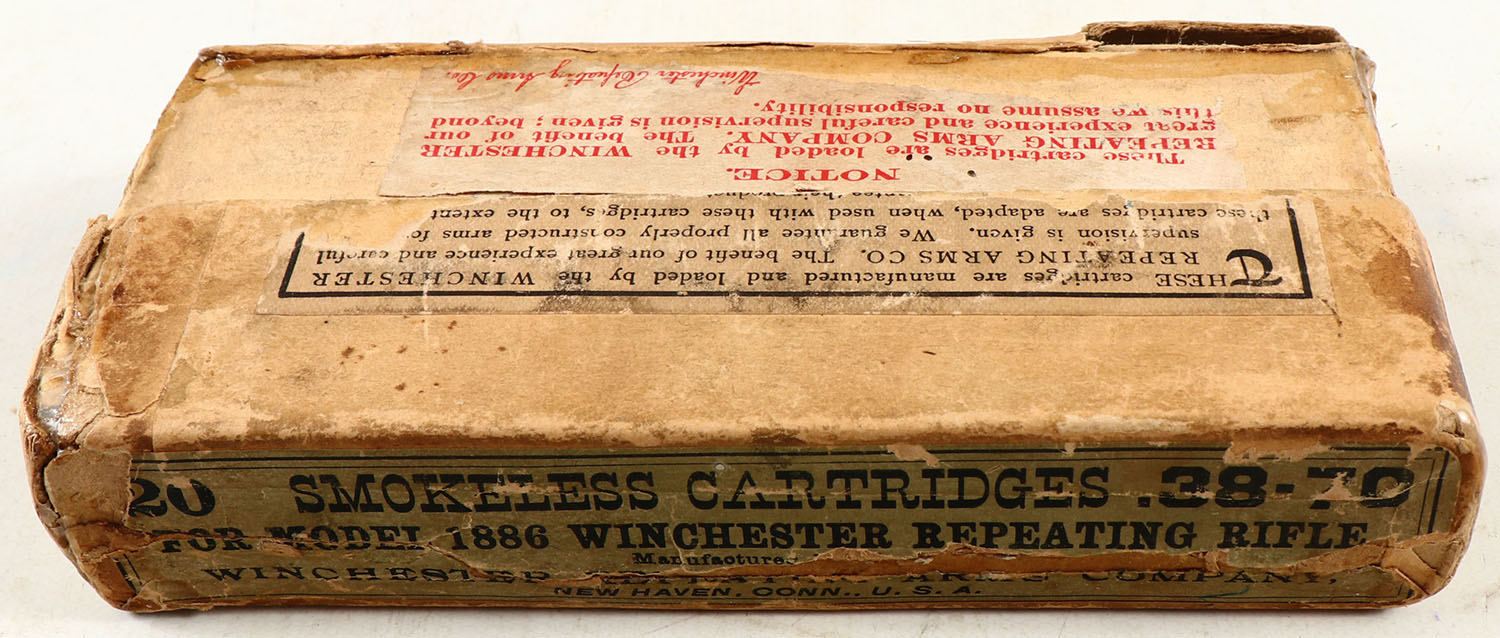 NOTICE.
These cartridges are loaded by the WINCHESTER
REPEATING ARMS COMPANY. The benefit of our
great experience and careful supervision is given; beyond
this we assume no responsibility.
Winchester Repeating Arms Co.
THESE cartridges are manufactured and loaded by the WINCHESTER
REPEATING ARMS CO. The benefit of our great experience and careful
supervision is given. We guarantee all properly constructed arms fo
these cartridges are adapted, when used with these cartridges, to the extent
20 SMOKELESS CARTRIDGES .38-70
FOR MODEL 1886 WINCHESTER REPEATING RIFLE
Manufacture
WINCHESTER ARMS COMPANY,
NEW HAVEN, CONN., U. S. A.